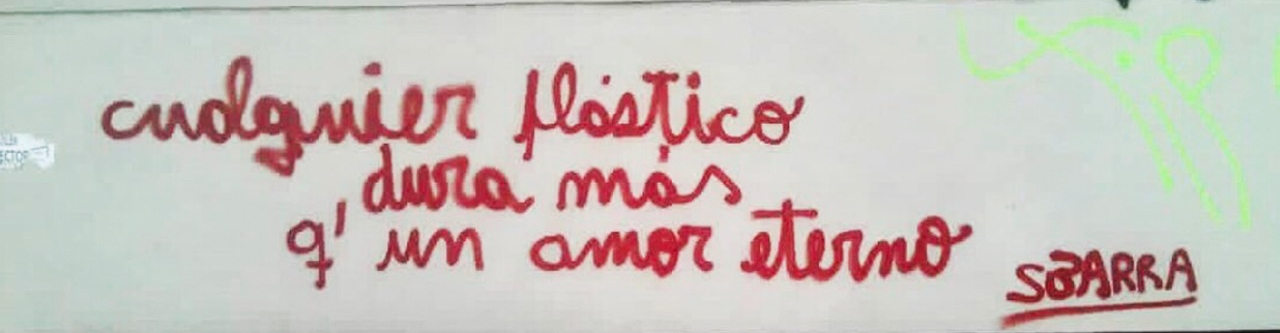 cualquier plástico
dura más
q' un amor eterno
SBARRA
ECTOR